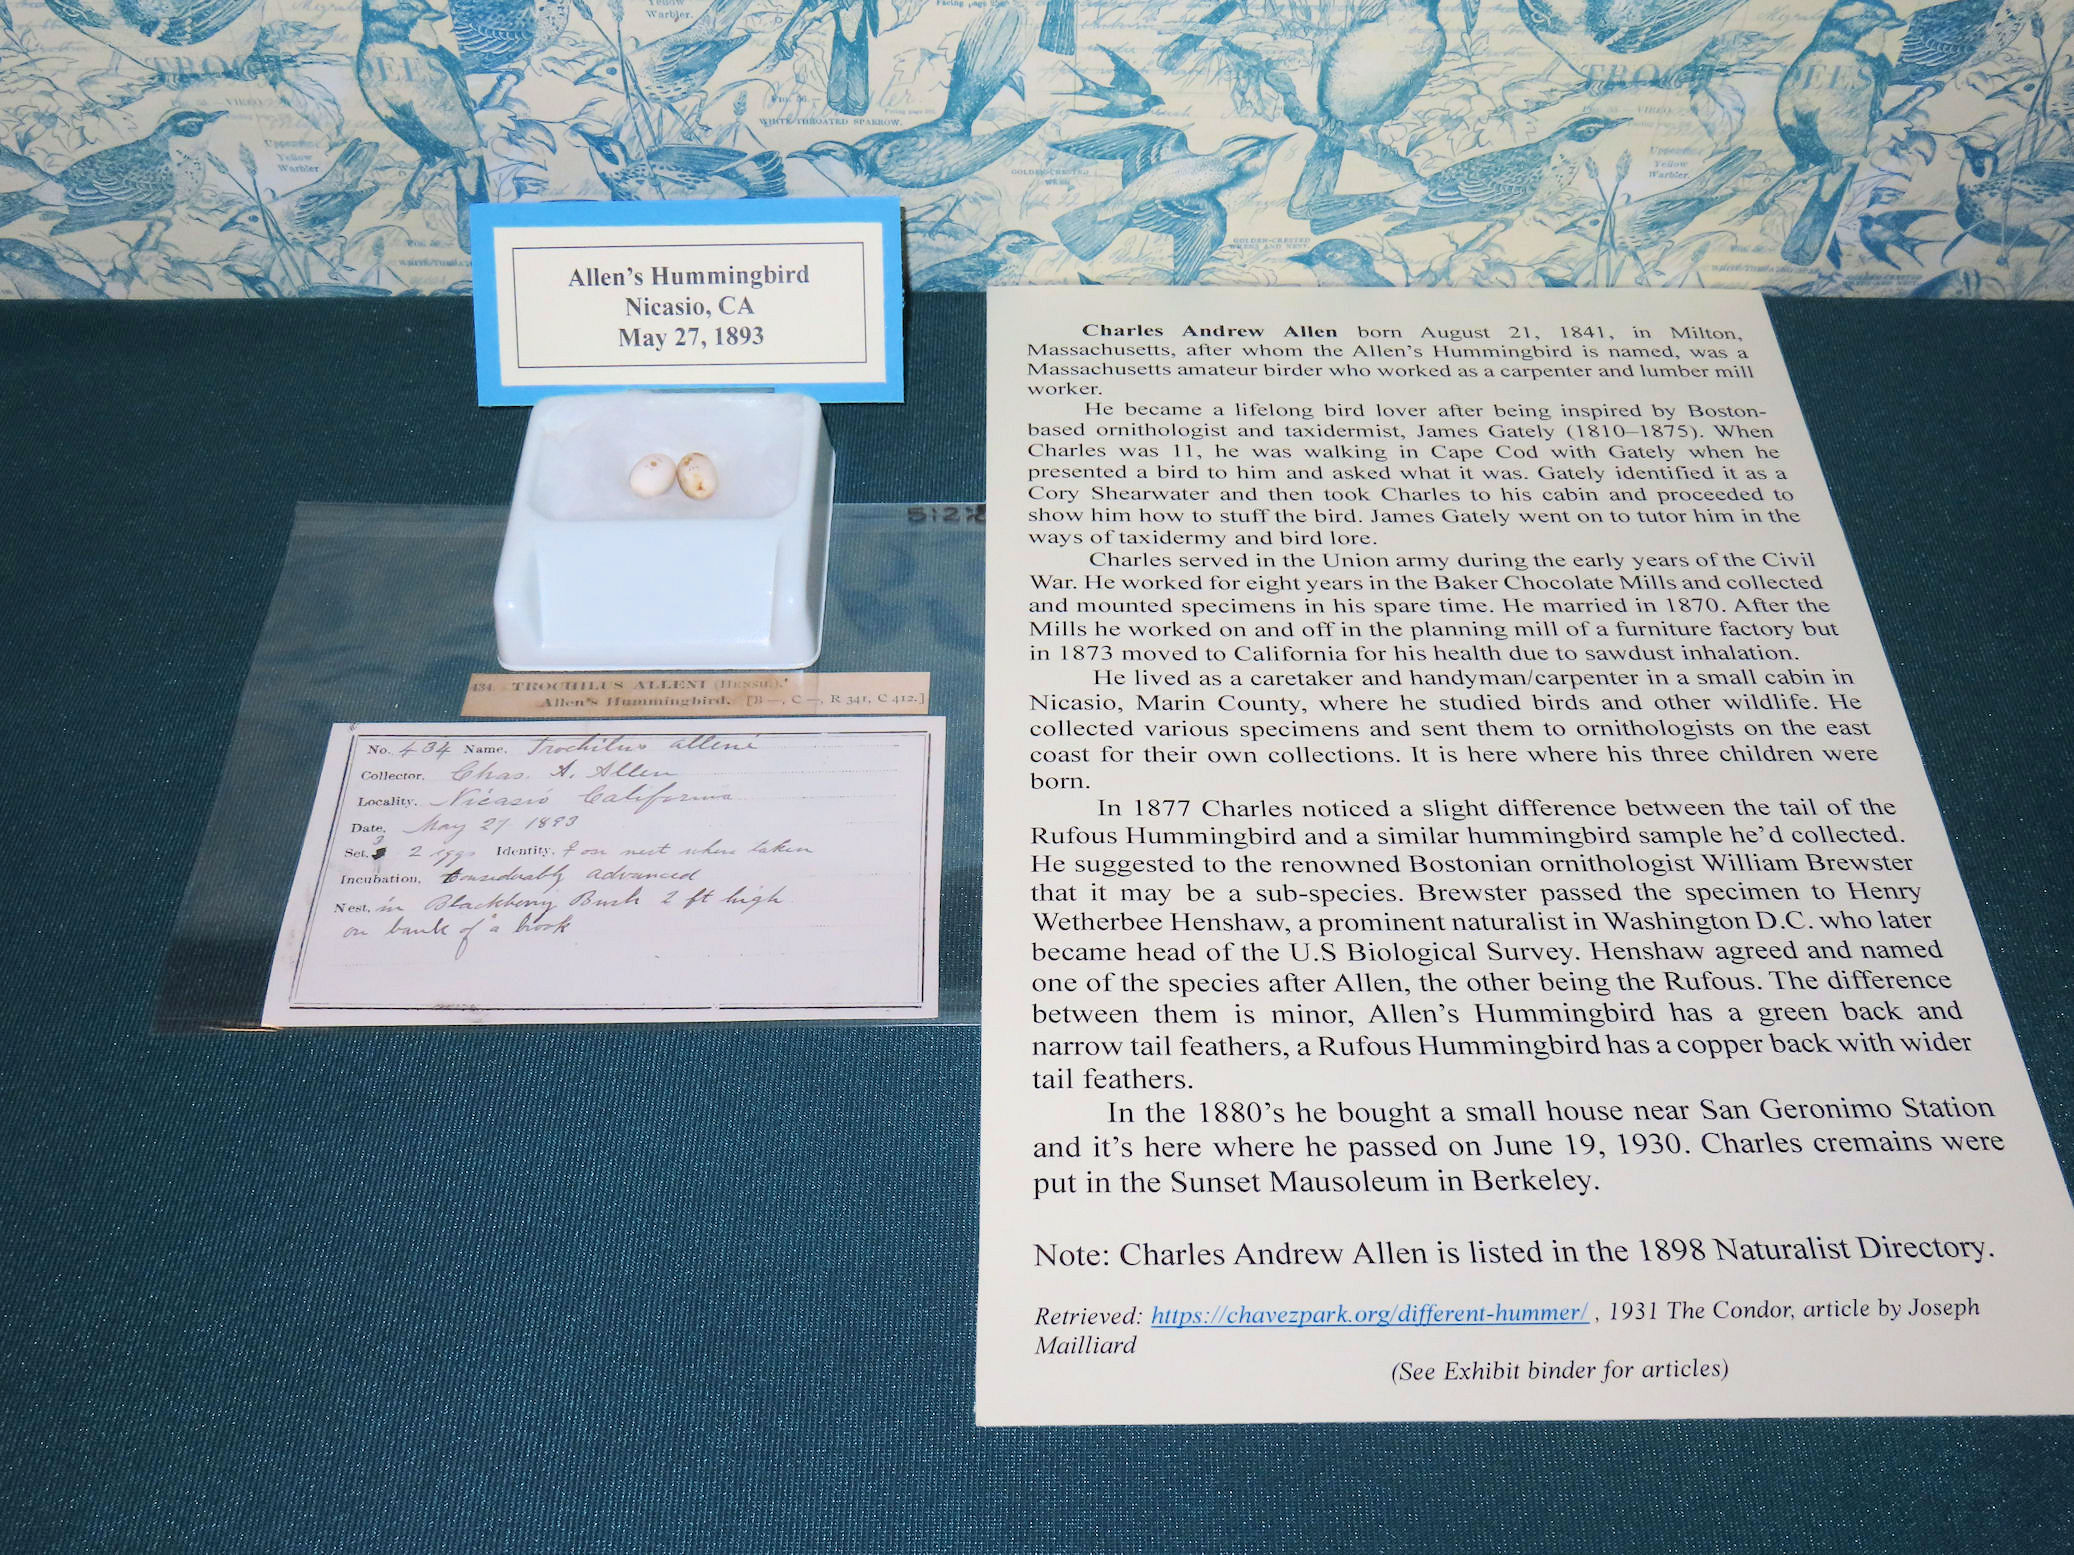 Yellow
Warbler.
Facing page
TROCH
DEES
WHITE-THROATED SPARROW.
Uppermost
Yellow
Warbler.
GOLDEN-CRESTED
WREN.
GOLDEN-CRESTED
WRENS AND NEST.
TROCH
DEES
Uppermost
Yellow
Warbler.
Allen's Hummingbird
Nicasio, CA
May 27, 1893
512
434 TROCHILUS ALLENI (HENSH.).
Allen's Hummingbird. [B —, C —, R 341, C 412.]
No. 434 Name, Trochilus alleni
Collector, Chas. A. Allen
Locality, Nicasio California
Date, May 27 1893
Set, 3 2 eggs Identity, ♀ on nest when taken
Incubation, Considerably advanced
Nest, in Blackberry Bush 2 ft high
on bank of a brook
Charles Andrew Allen born August 21, 1841, in Milton,
Massachusetts, after whom the Allen's Hummingbird is named, was a
Massachusetts amateur birder who worked as a carpenter and lumber mill
worker.
He became a lifelong bird lover after being inspired by Boston-
based ornithologist and taxidermist, James Gately (1810–1875). When
Charles was 11, he was walking in Cape Cod with Gately when he
presented a bird to him and asked what it was. Gately identified it as a
Cory Shearwater and then took Charles to his cabin and proceeded to
show him how to stuff the bird. James Gately went on to tutor him in the
ways of taxidermy and bird lore.
Charles served in the Union army during the early years of the Civil
War. He worked for eight years in the Baker Chocolate Mills and collected
and mounted specimens in his spare time. He married in 1870. After the
Mills he worked on and off in the planning mill of a furniture factory but
in 1873 moved to California for his health due to sawdust inhalation.
He lived as a caretaker and handyman/carpenter in a small cabin in
Nicasio, Marin County, where he studied birds and other wildlife. He
collected various specimens and sent them to ornithologists on the east
coast for their own collections. It is here where his three children were
born.
In 1877 Charles noticed a slight difference between the tail of the
Rufous Hummingbird and a similar hummingbird sample he'd collected.
He suggested to the renowned Bostonian ornithologist William Brewster
that it may be a sub-species. Brewster passed the specimen to Henry
Wetherbee Henshaw, a prominent naturalist in Washington D.C. who later
became head of the U.S Biological Survey. Henshaw agreed and named
one of the species after Allen, the other being the Rufous. The difference
between them is minor, Allen's Hummingbird has a green back and
narrow tail feathers, a Rufous Hummingbird has a copper back with wider
tail feathers.
In the 1880's he bought a small house near San Geronimo Station
and it's here where he passed on June 19, 1930. Charles cremains were
put in the Sunset Mausoleum in Berkeley.
Note: Charles Andrew Allen is listed in the 1898 Naturalist Directory.
Retrieved: https://chavezpark.org/different-hummer/ , 1931 The Condor, article by Joseph
Mailliard
(See Exhibit binder for articles)